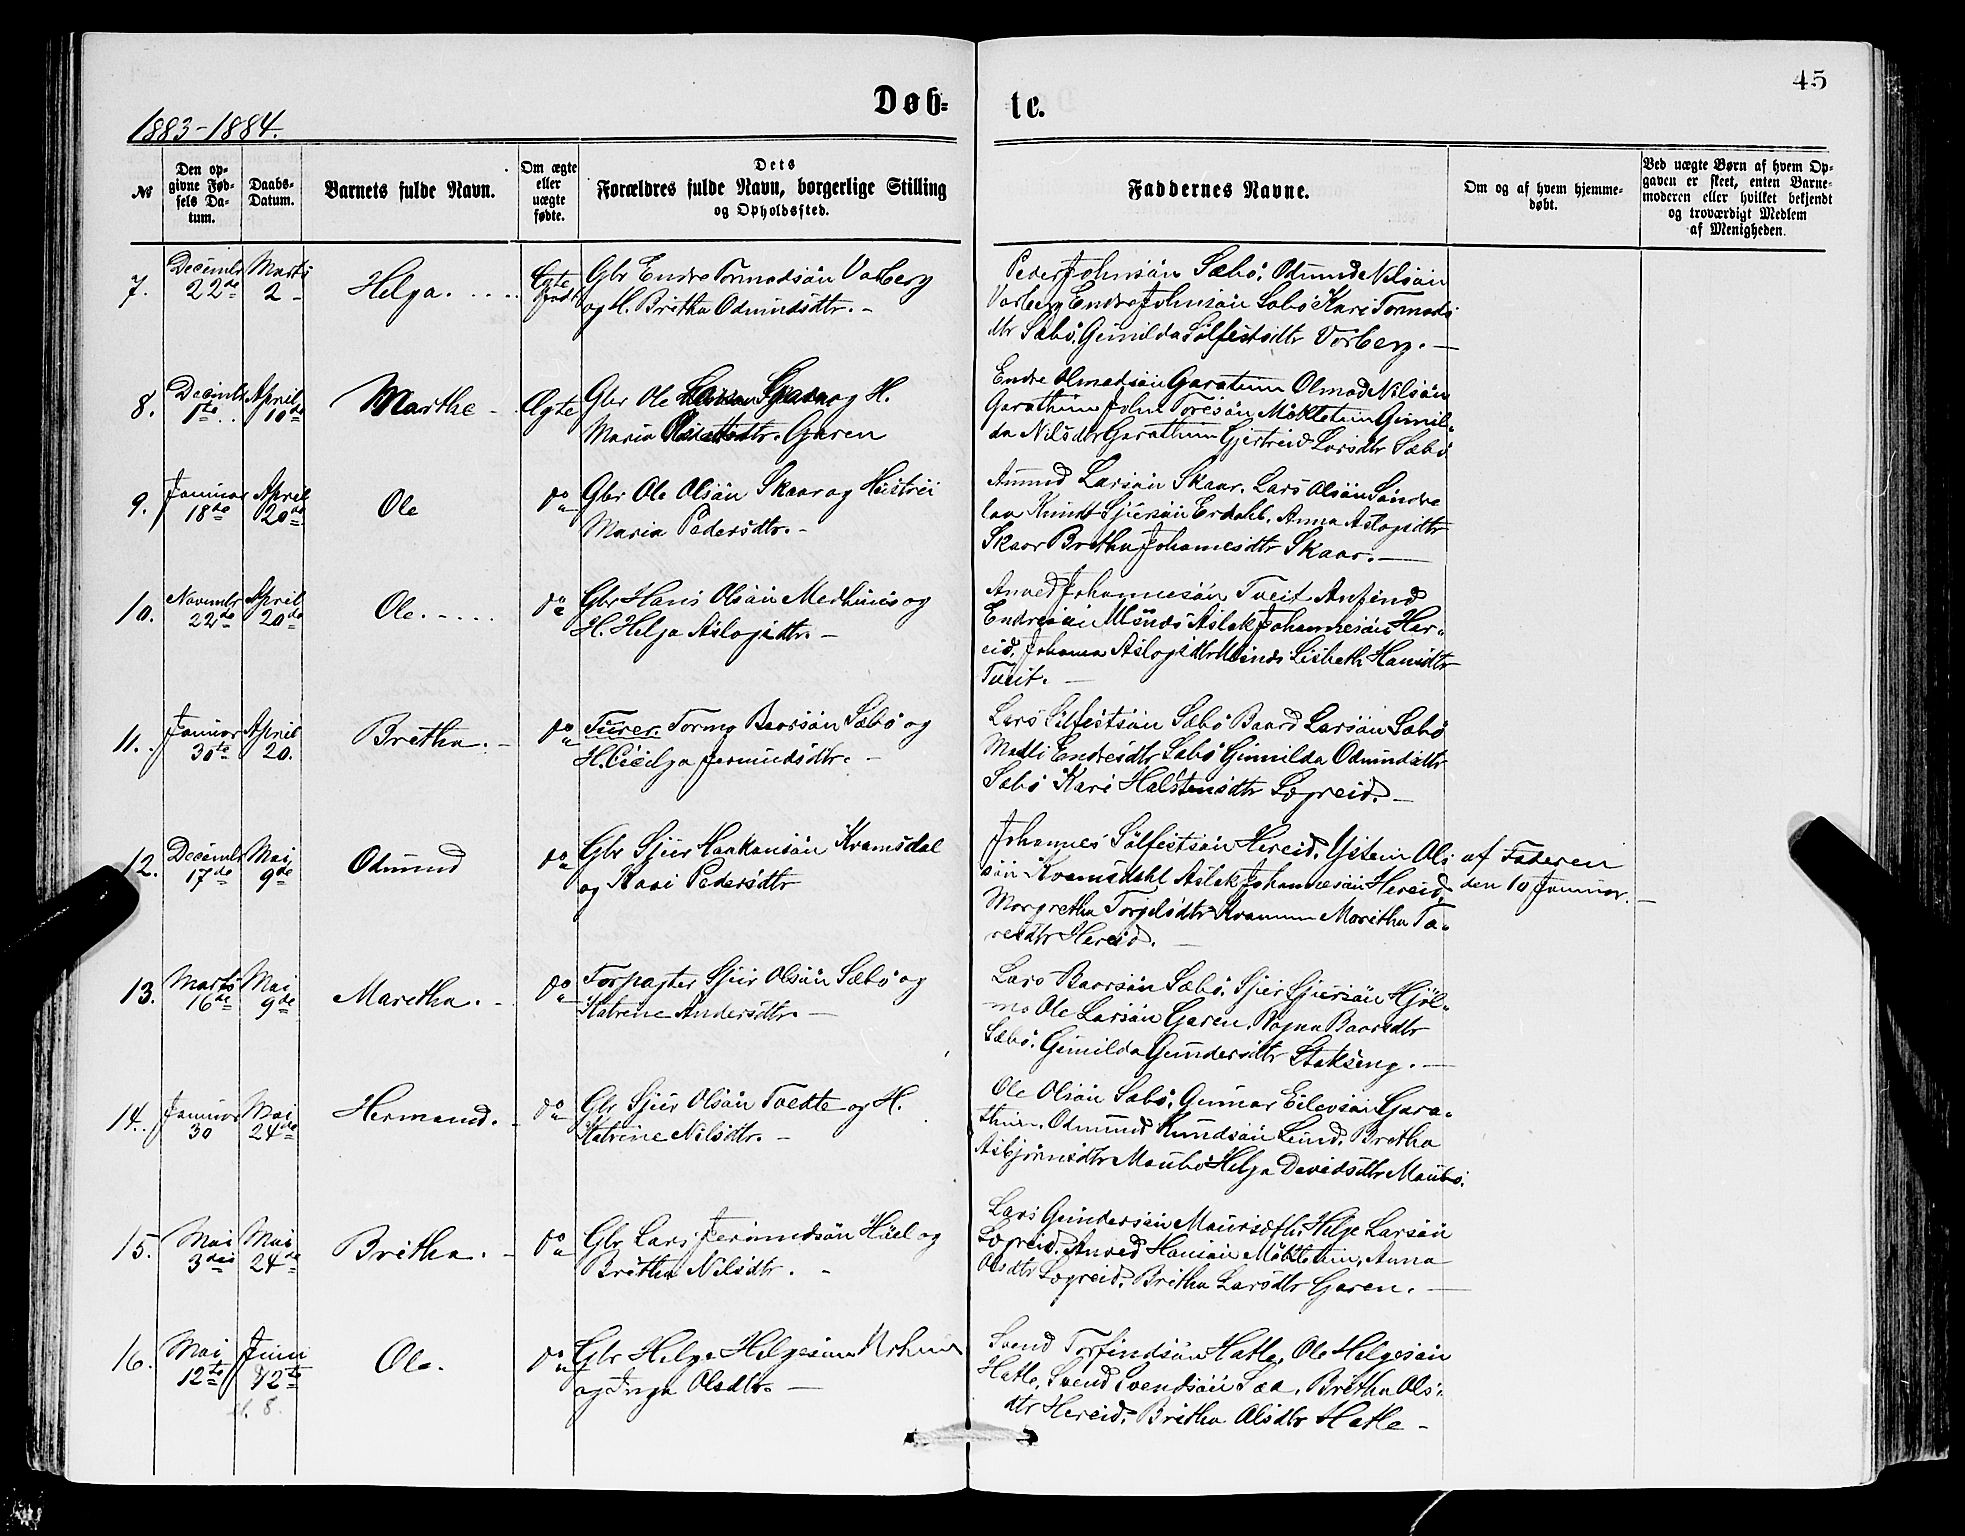 45
Døb-
te.
1883-1884.
№
Den op-
givne Fød-
sels Da-
tum.
Daabs-
Datum.
Barnets fulde Navn.
Om ægte
eller
uægte
fødte.
Dets
Forældres fulde Navn, borgerlige Stilling
og Opholdssted.
Faddernes Navne.
Om og af hvem hjemme-
døbt.
Ved uægte Børn af hvem Op-
gaven er skeet, enten Barne-
moderen eller hvilket bekjendt
og troværdigt Medlem
af Menigheden.
7. Decembr 22de Marts 2 Helga. Ægte født
Gbr Endre Tormodsön Varberg
og H. Britha Odmundsdtr.
Peder Johnsön Sæbö, Odmund Nilsön
Varberg Endre Johnsön Sæbö Kari Tormods
dtr Sæbö, Gunilda Sölfestsdtr Vorberg.
8. Decembr 1te April 10de Marthe Ægte
Gbr Ole og H.
Maria Garen
Endre Olmodsön Garathun Olmod Nilsön
Garathun John Toresön Mökletun Gunil-
da Nilsdtr Garathun Gjertrud Larsdtr Sæbö
9. Januar 18de April 20de Ole do
Gbr Ole Olsön Skaar og Hustru
Maria Pedersdtr.
Amund Larsön Skaar. Lars Olsön Söndre
laa Knudt Sjursön Erdahl, Anna Aslagsdtr
Skaar Britha Johanesdtr Skaar.
10. Novembr 22de April 20de Ole. do
Gbr Hans Olsön Medhuus og
H. Helga Aslagsdtr.
Anved Johannesön Tveit Anfind
Endresön Mysnæs Aslak Johannesön Her-
eid, Johanna Aslagsdtr Lisbeth Hansdtr
Tveit.
11. Januar 30te April 20. Britha. do
Furer. Tormo Baarsön Sæbö og
H. Cicilga Jermundsdtr.
Lars Sölfestsön Sæbö Baard Larsön Sæbö
Madli Endresdtr Sæbö Gunnilda Odmundsdtr
Sæbö Kari Halstensdtr Legreid.
12. Decembr 17de Mai 9de Odmund do
Gbr Sjur Haakonsön Kramsdal
og Kari Pedersdtr
Johannes Sölfestsön Hereid, Ystein Ols
sön Kvamsdahl Aslak Johannesön Hereid,
Margretha Torgelsdtr Kvammen Maritha To-
resdtr Hereid.
af Faderen
den 10 Januar.
13. Marts 16de Mai 9de Maretha. do
Forpagter Sjur Olsön Sæbö og
Katrine Andersdtr.
Lars Baarsön Sæbö. Sjur Sjursön Hjöl-
mo Ole Larsön Garen. Ragna Baarsdtr
Sæbö. Gunilda Gundersdtr Stakseng.
14. Januar 30 Mai 24de Hermand. do
Gbr Sjur Olsön Tvedte og H.
Katrine Nilsdtr.
Ole Olsön Sæbö, Gunnar Eilevsön Gara-
thun. Odmund Knudsön Lund. Britha
Asbjörnsdtr Maubö Helga Davidsdtr Maubö.
15. Mai 3die Mai 24de Britha. do
Gbr Lars Jermundsön Hüel og
Britha Nilsdtr.
Lars Gundersön Maursæth, Helge Larsön
Legreid. Anved Hansön Möklethun, Anna
Olsdtr Legreid. Britha Larsdtr Garen.
16. Mai 12te Juni 12te Ole. do
8.
Gbr Helge Helgesön
og Inga Olsdtr.
Svend Torfindsön Hatle, Ole Helgesön
Hatle, Svend Svendsön Sæd, Britha Ols-
dtr Hereid, Britha Olsdtr Hatle